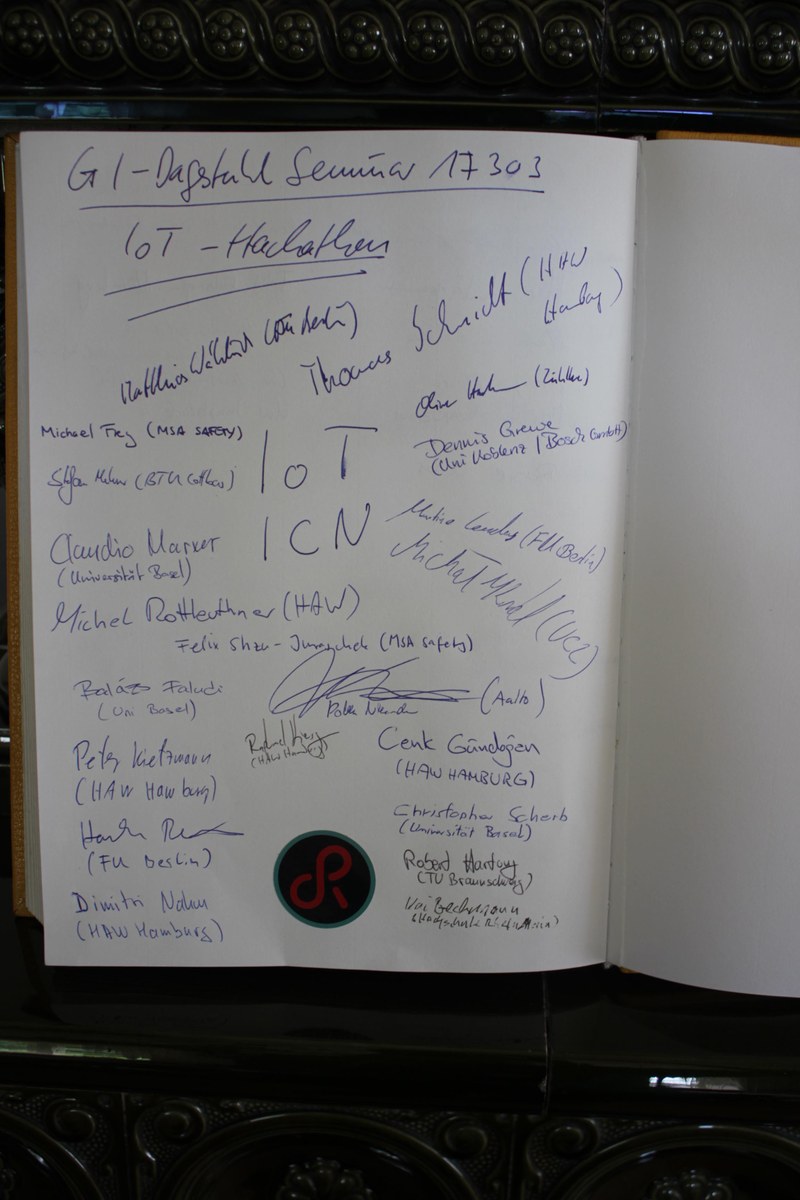 GI-Dagstuhl Seminar 17303
IoT-Hackathon
Matthias Wählisch (FU Berlin)
Thomas Schmidt (HAW
Hamburg)
Oliver (Zühlke)
Michael Frey (MSA SAFETY)
IoT
Dennis Grewe
(Uni Koblenz | Bosch
Stefan (BTU Cottbus)
ICN
Martine Lenders (FU Berlin)
Claudio Marxer
(Universität Basel)
Michał Król (UCL)
Michel Rottleuthner (HAW)
Felix Shzu-Juraschek (MSA Safety)
Balázs Faludi
(Uni Basel)
(Aalto)
Pekka Nikander
Peter Kietzmann
(HAW Hamburg)
(HAW Hamburg)
Cenk Gündoğan
(HAW HAMBURG)
(FU Berlin)
Christopher Scherb
(Universität Basel)
Robert Hartung
(TU Braunschweig)
Dimitri Nahm
(HAW Hamburg)
Kai Beckmann
(Hochschule RheinMain)